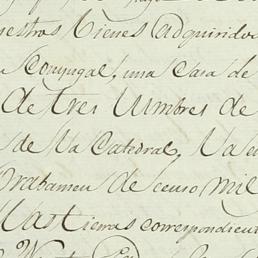 nuestros Bienes adquiridos
Conyugal, una Casa de
de tres Lumbres de
de la Catedral, la
de censo mil
las tierras correspondient